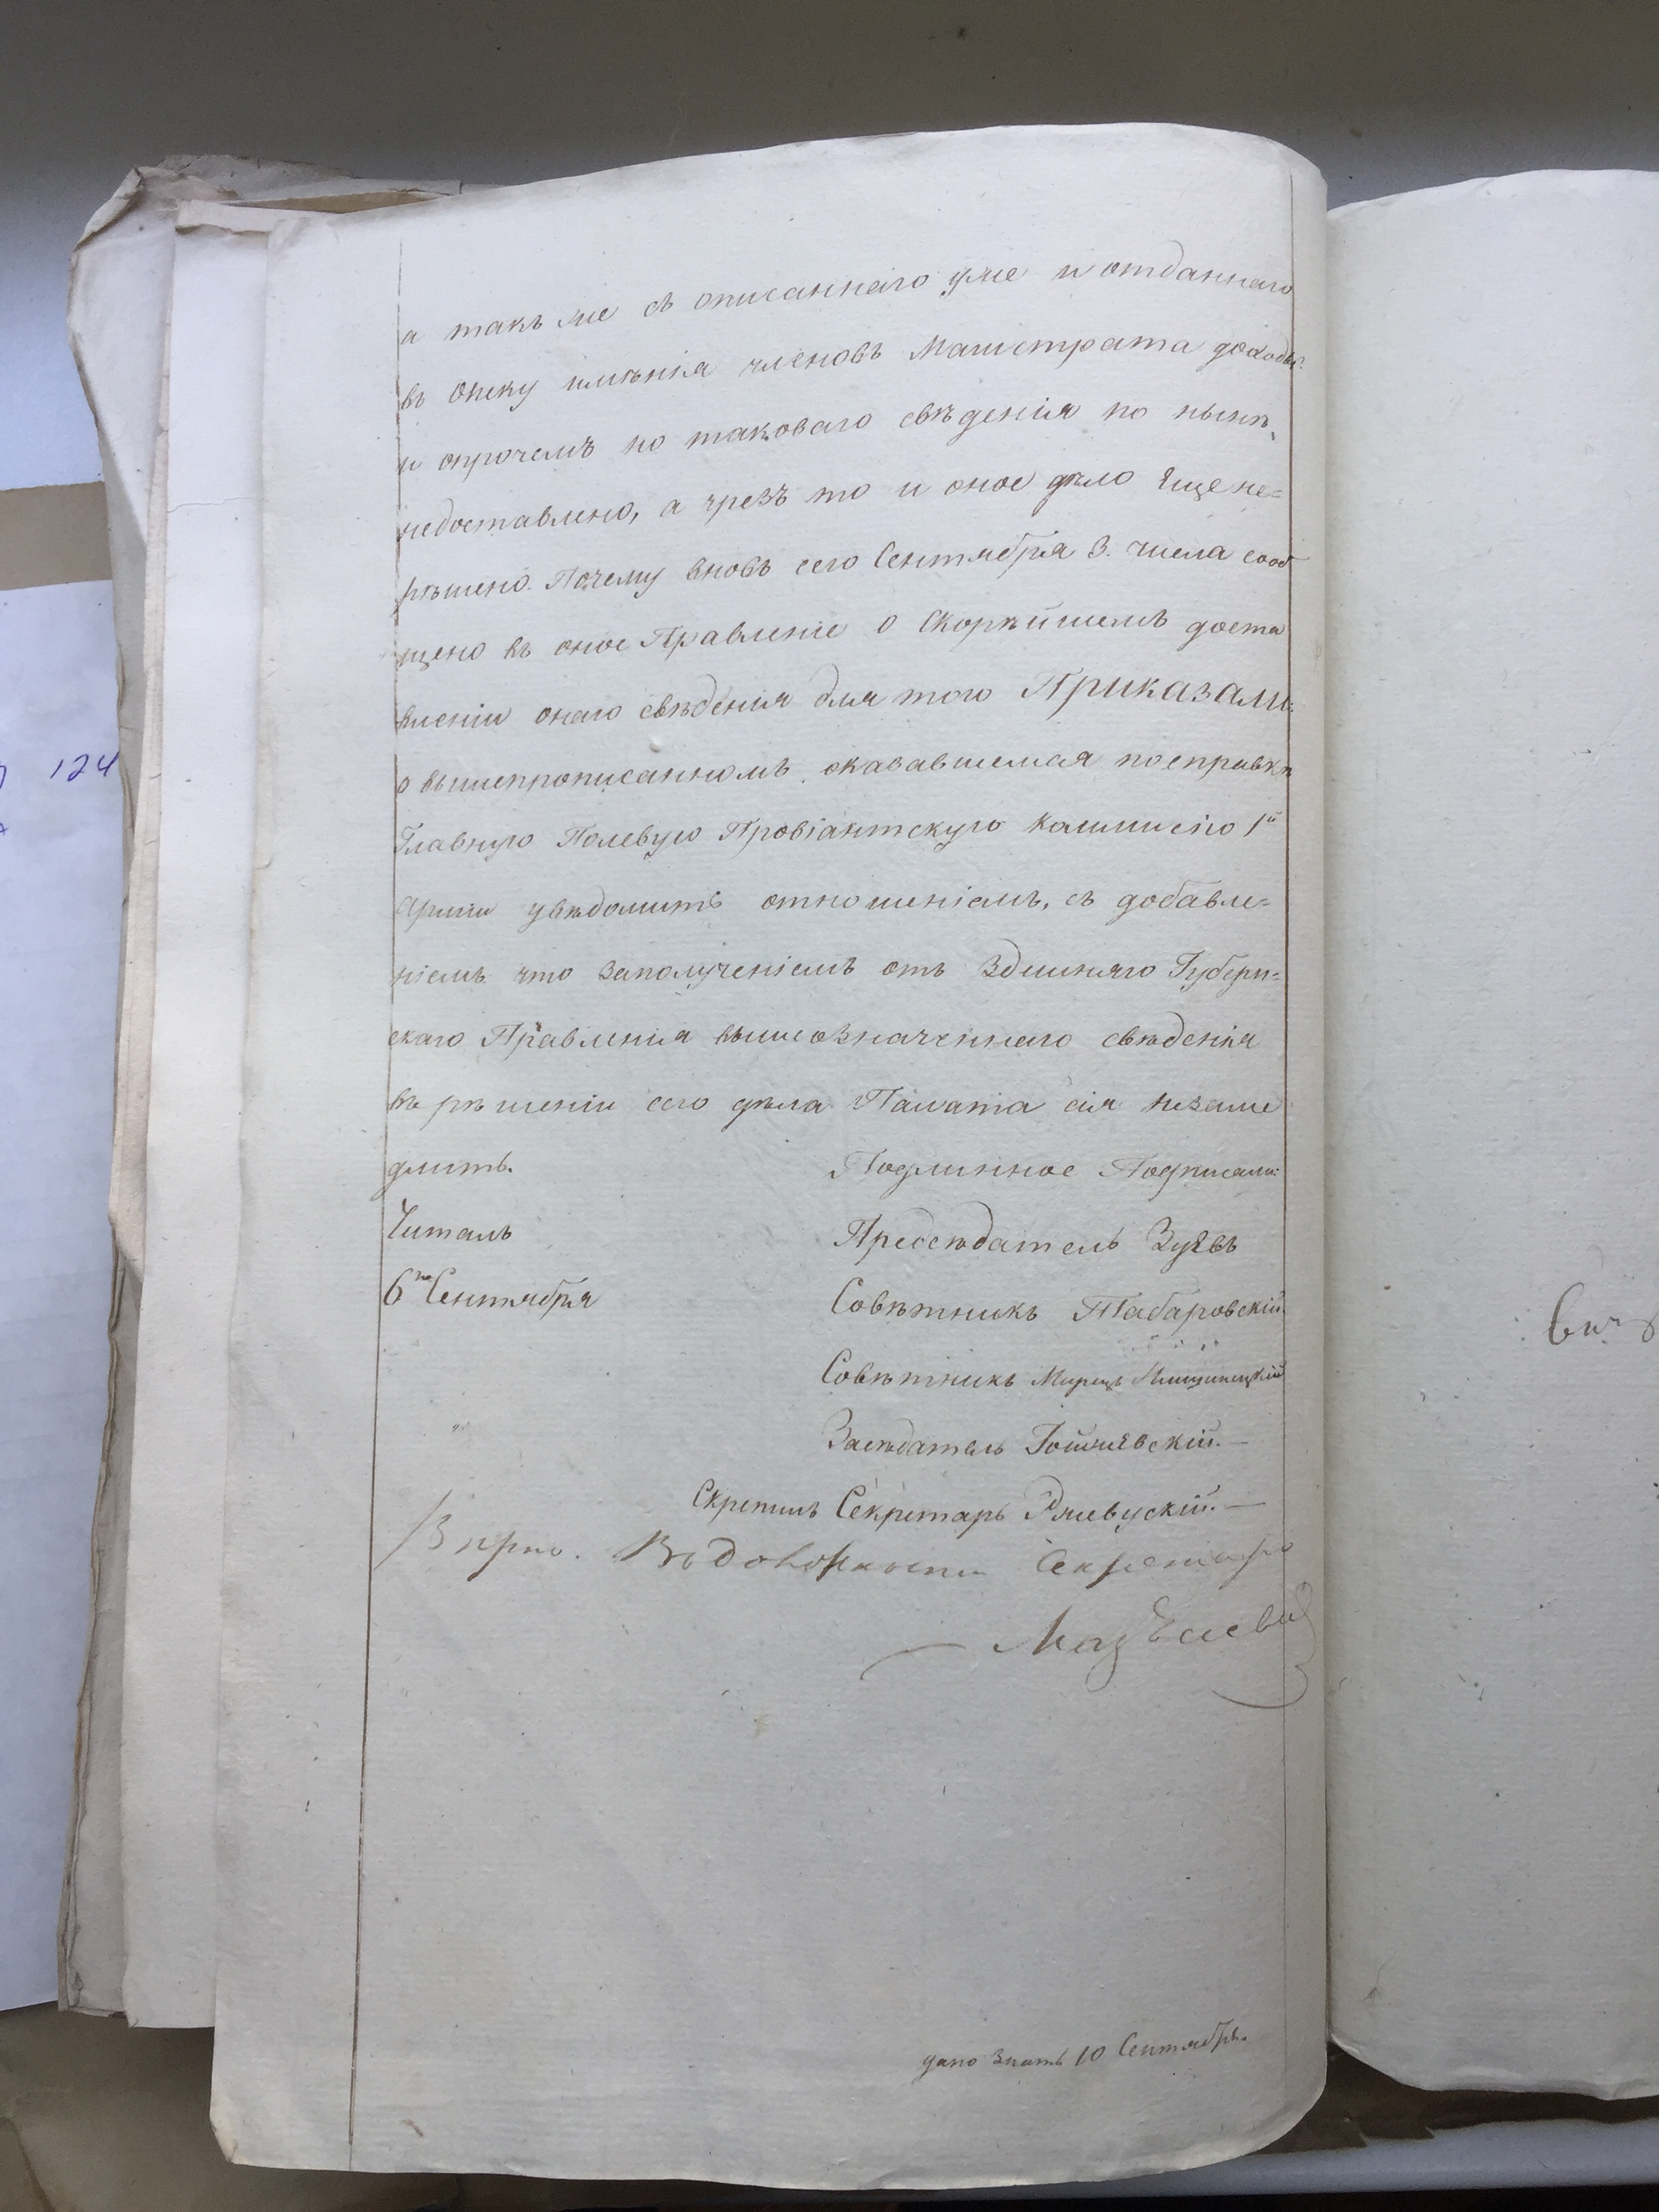 а такъ же съ описаннаго уже и отданнаго
въ опеку имѣнія членовъ Магистрата доходы?
и опрочемъ но таковаго свѣденія по нынѣ
недоставлено, а чрезъ то и оное дѣло Еще не=
рѣшено. Почему вновь сего Сентября 3. числа сооб
щено въ оное Правленіе о Скорѣйшемъ доста
вленіи онаго свѣденія для того Приказали:
о вышепрописанномъ оказавшемся посправкѣ
Главную Полевую Провіантскую Коммисію 1й
Арміи увѣдомить отношеніемъ, съ добавле=
ніемъ что заполученіемъ отъ Здешняго Губерн=
скаго Правленія вышеозначеннаго свѣденія
въ рѣшеніи сего дѣла Палата сія незаме
длитъ.
Подлинное Подписали:
Читалъ
Предсѣдатель Зуевъ
6го Сентября
Совѣтникъ Табаровскій
Совѣтникъ
Засѣдатель
Скрепилъ Секретарь Ржевускій.—
Вѣрно. Въ должности Секретаря
дано знать 10 Сентября.
124